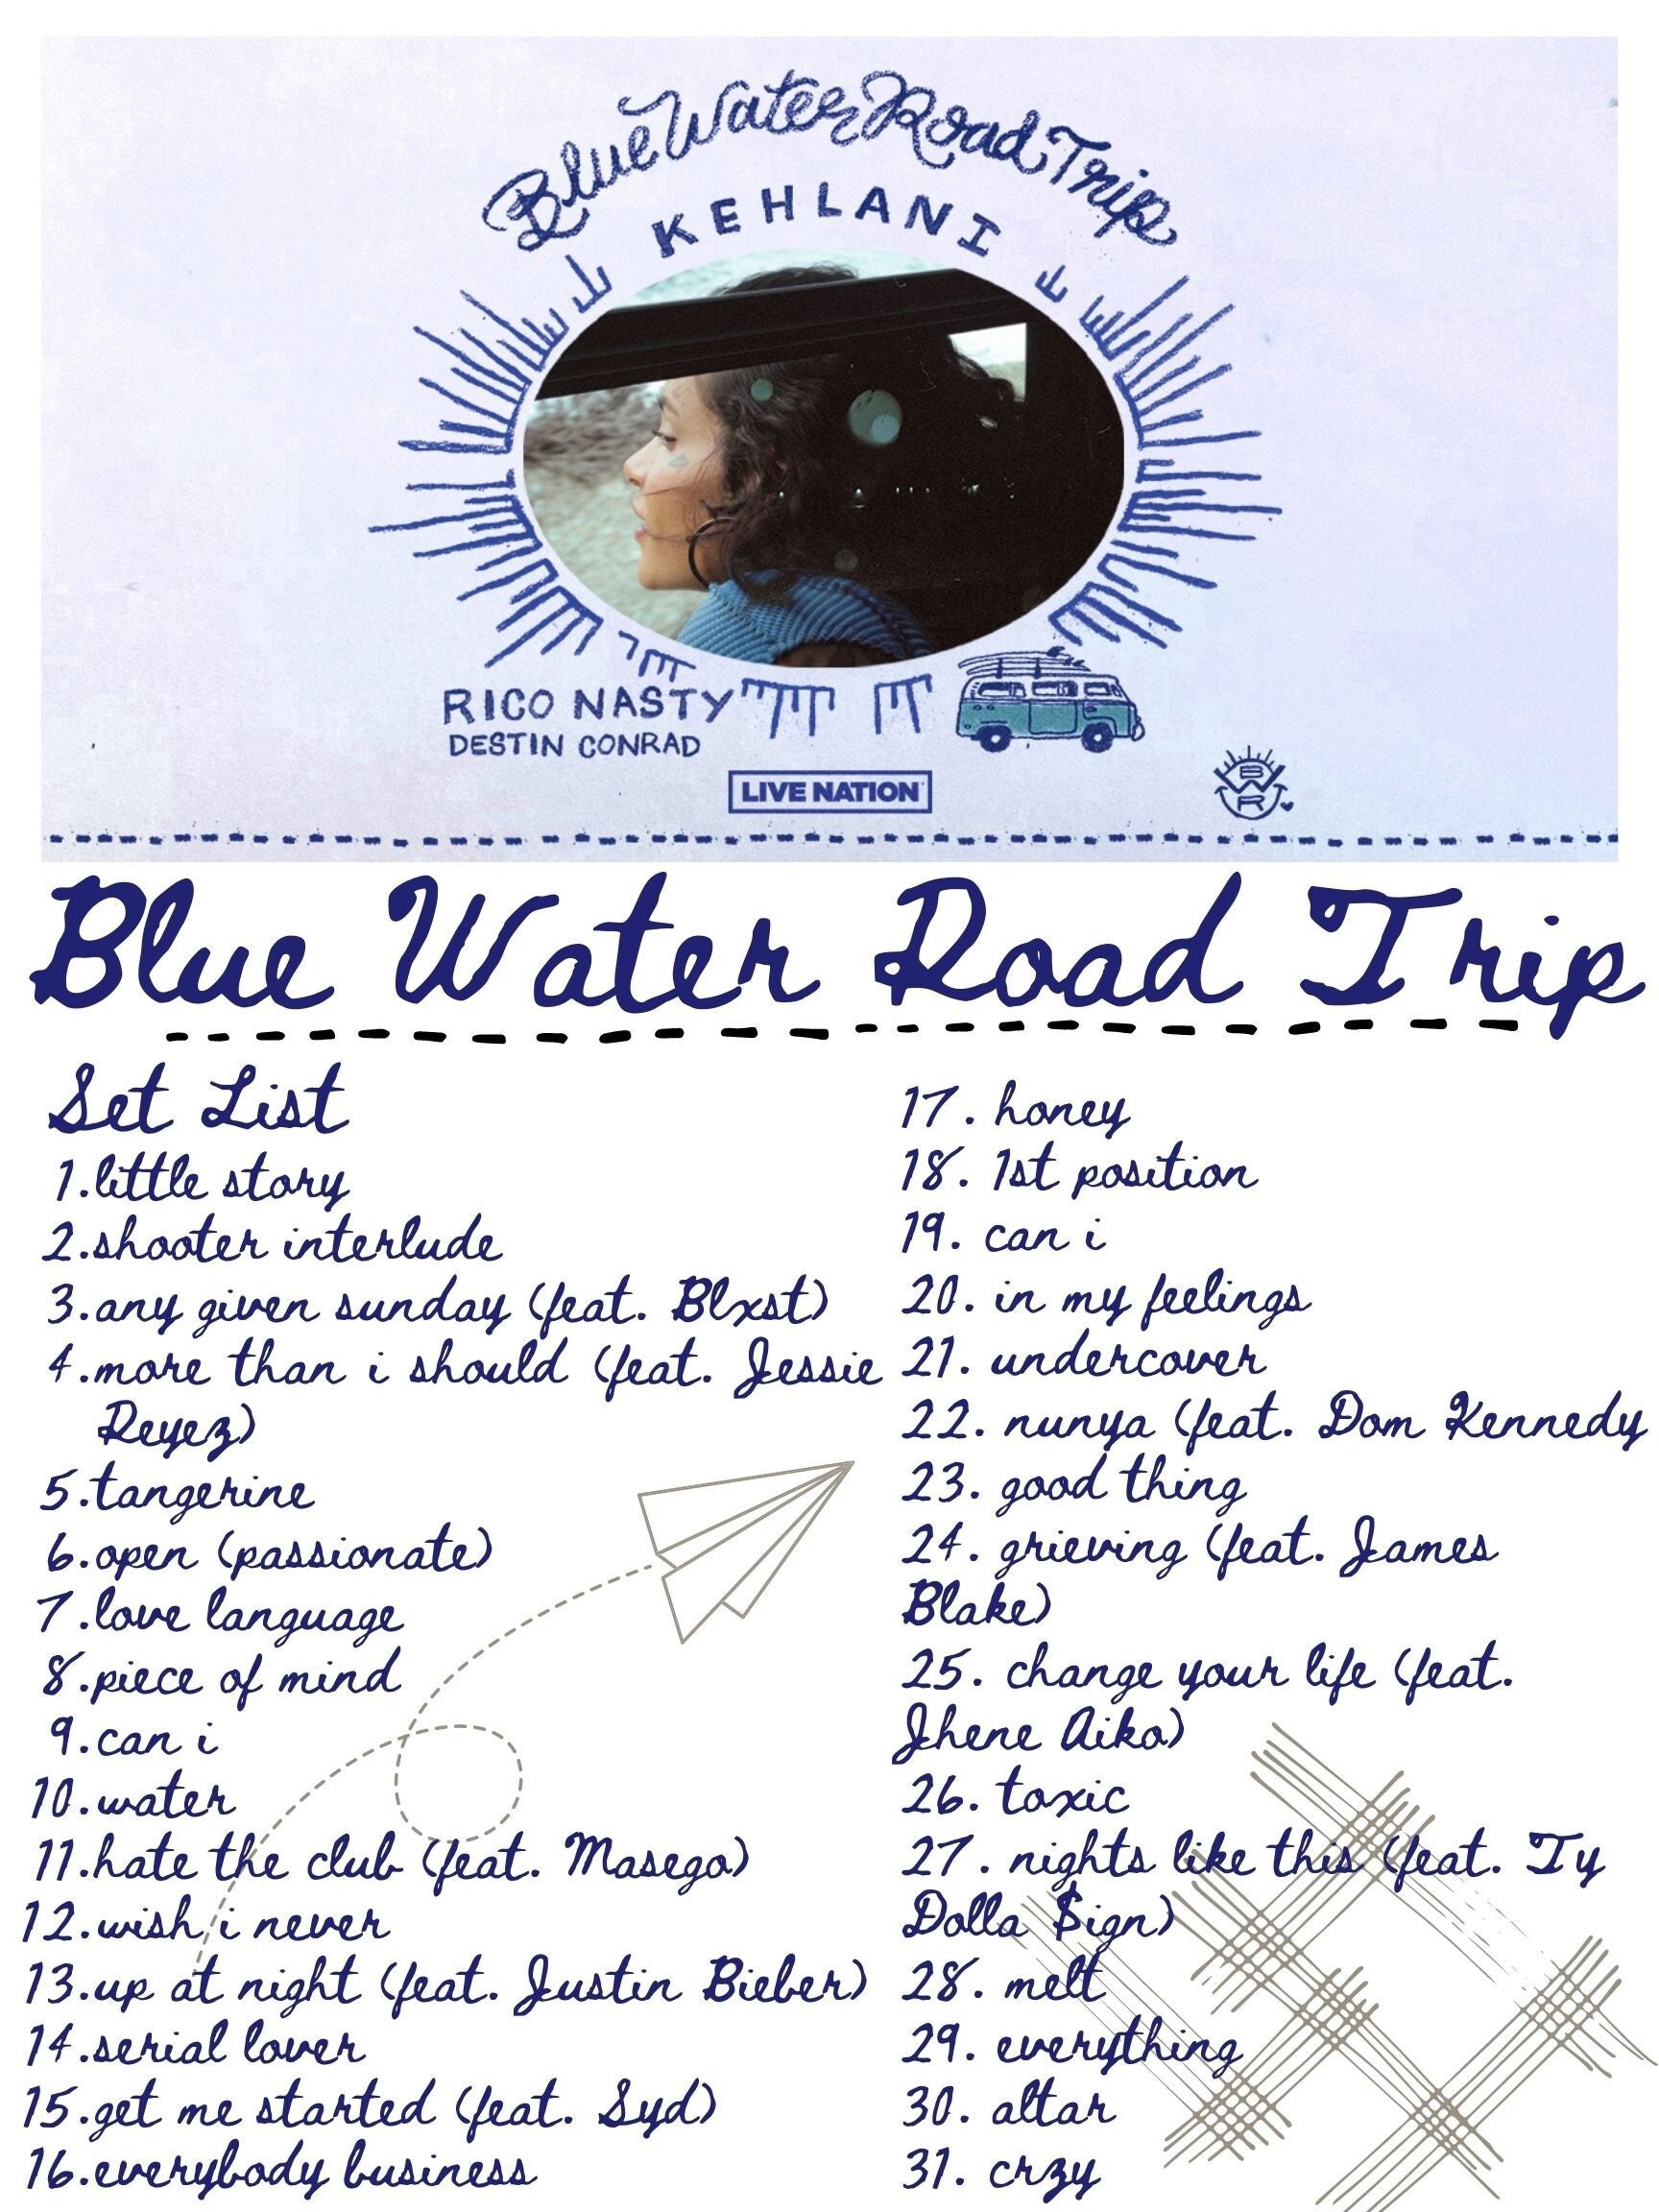 Blue Water Road Trip
KEHLANI
RICO NASTY
DESTIN CONRAD
LIVE NATION
BWR
Blue Water Road Trip
Set List
1. little story
2. shooter interlude
3. any given sunday (feat. Blxst)
4. more than i should (feat. Jessie
Reyez)
5. tangerine
6. open (passionate)
7. love language
8. piece of mind
9. can i
10. water
11. hate the club (feat. Masego)
12. wish i never
13. up at night (feat. Justin Bieber)
14. serial lover
15. get me started (feat. Syd)
16. everybody business
17. honey
18. 1st position
19. can i
20. in my feelings
21. undercover
22. nunya (feat. Dom Kennedy
23. good thing
24. grieving (feat. James
Blake)
25. change your life (feat.
Jhene Aiko)
26. toxic
27. nights like this (feat. Ty
Dolla $ign)
28. melt
29. everything
30. altar
31. crzy